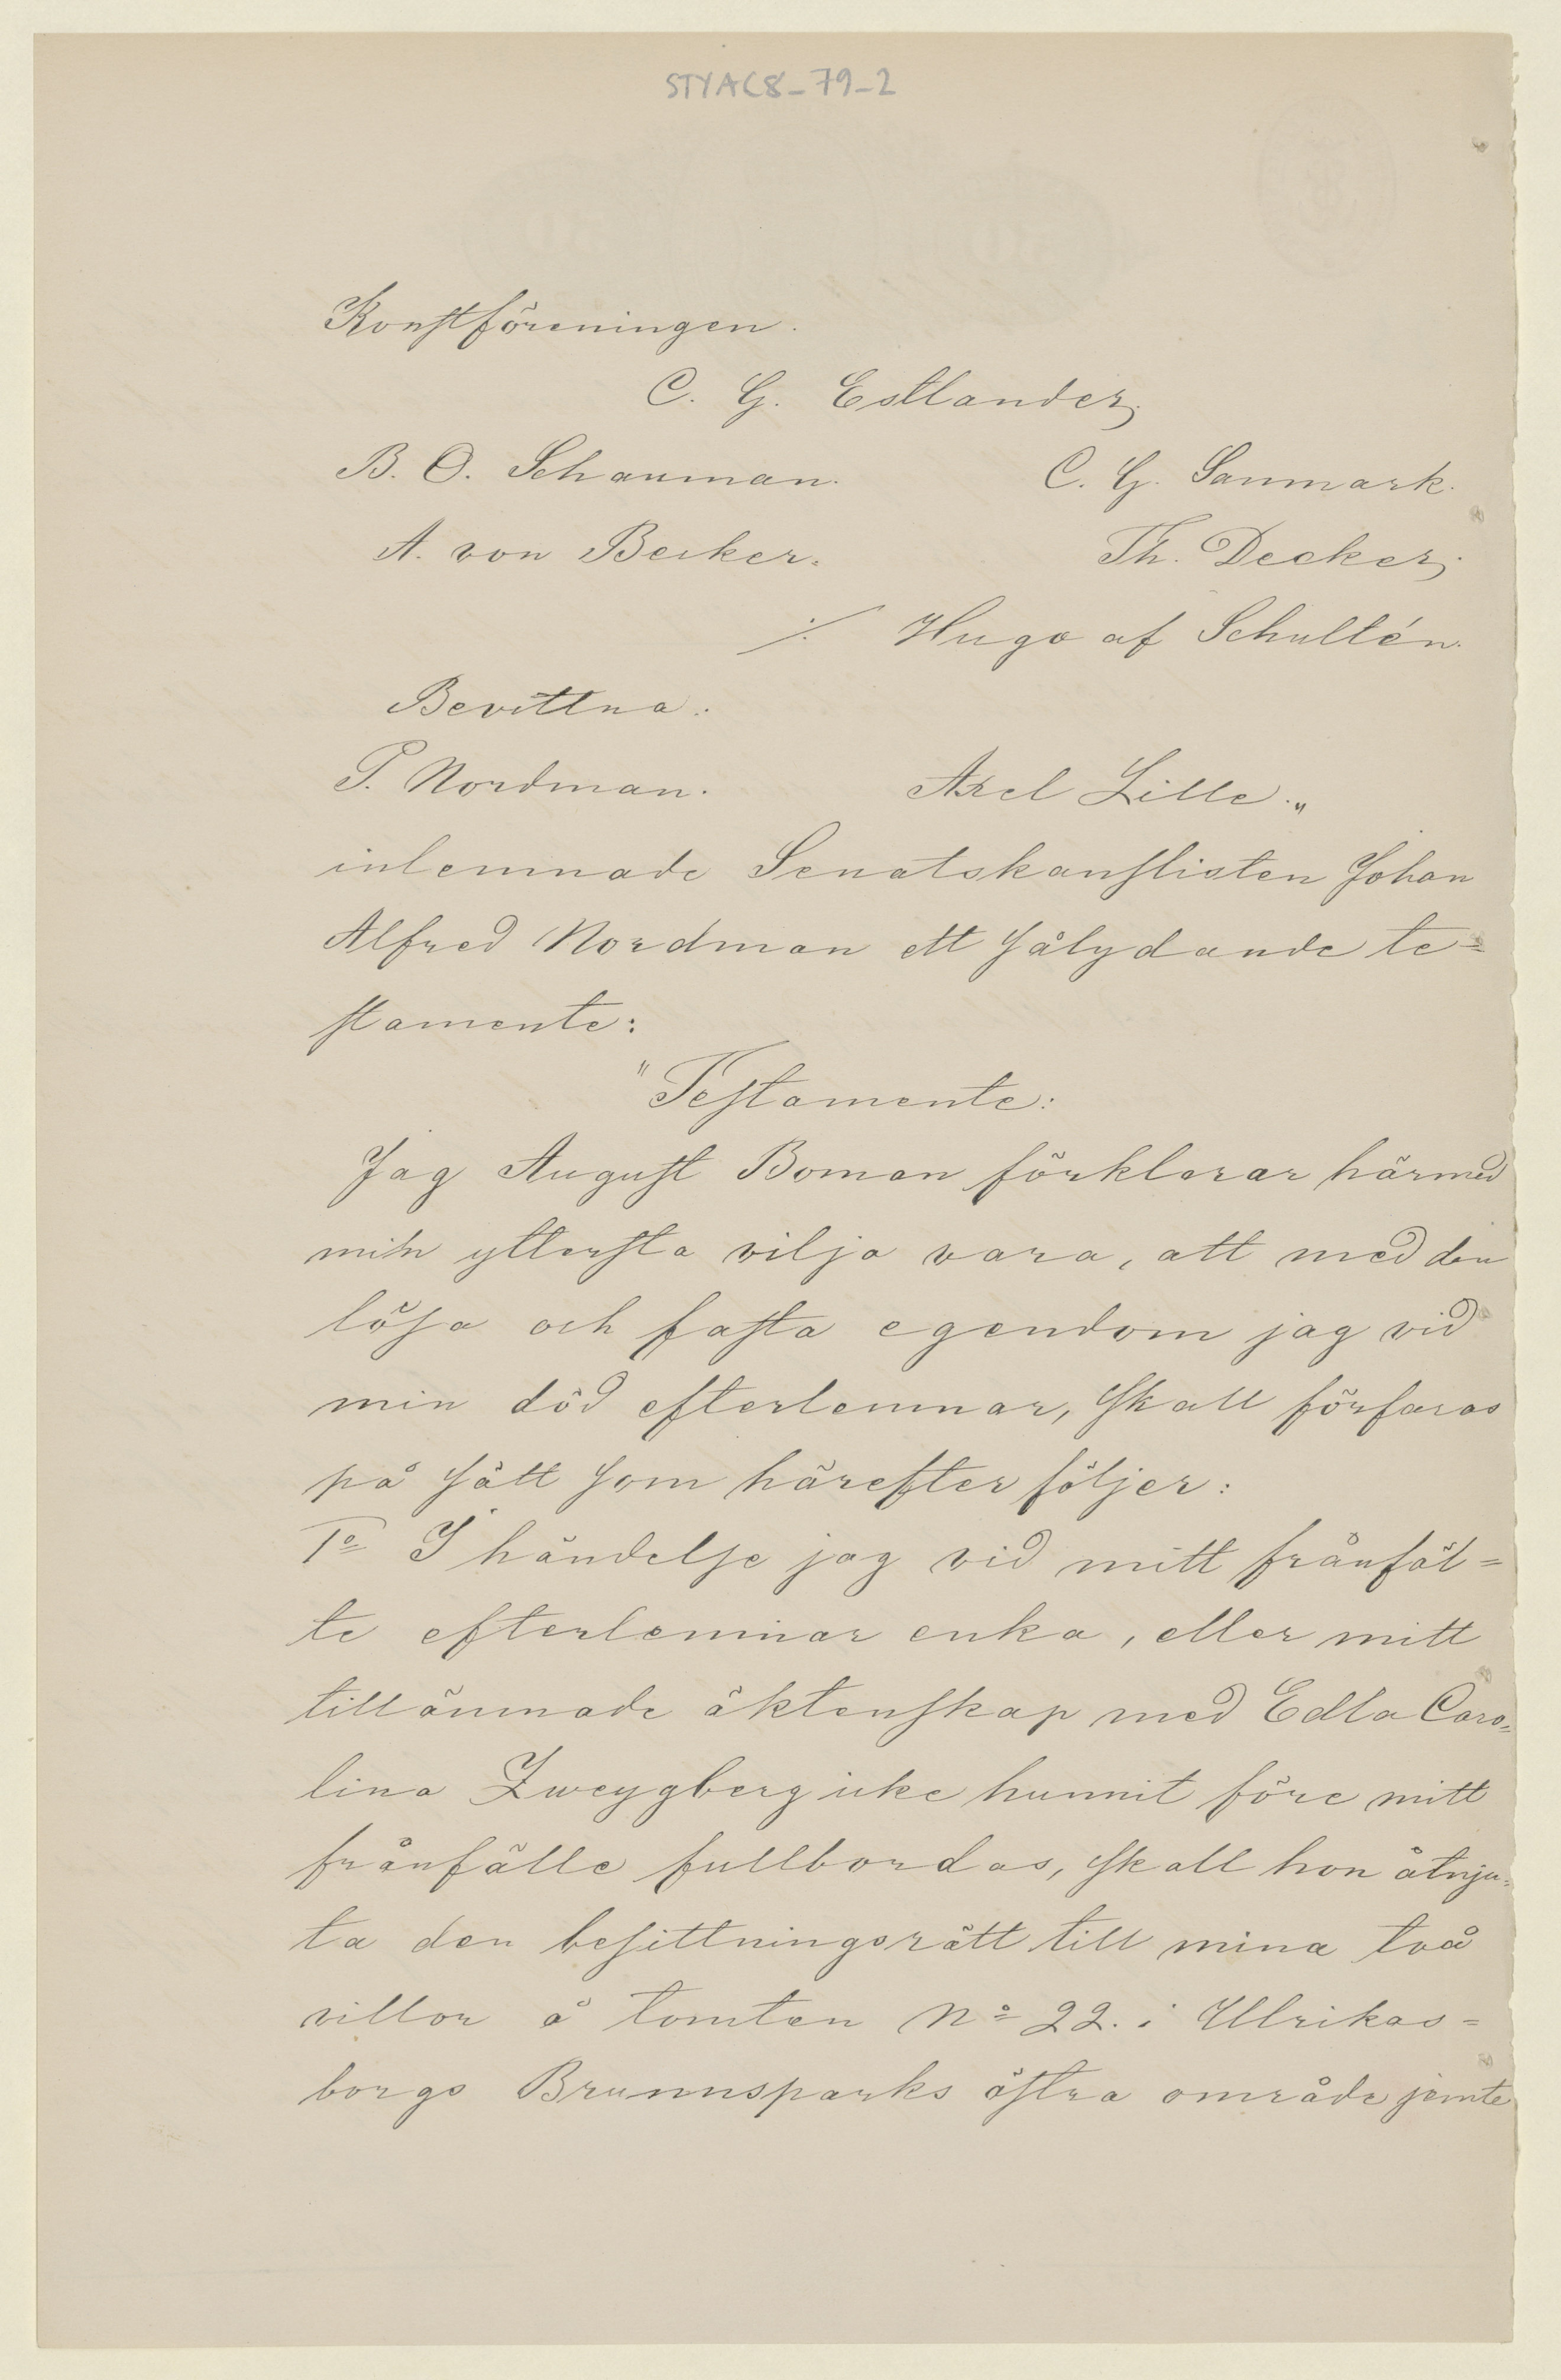 STYAC8_79_2
Konstföreningen.
C. G. Estlander.
B. O. Schauman. C. G. Sanmark.
A. von Becker. Th. Decker.
./. Hugo af Schultén.
Bevittna:
P. Nordman. Axel Lille."
inlemnade Senatskanslisten Johan
Alfred Nordman ett sålydande te=
stamente:
"Testamente:
Jag August Boman förklarar härmed
min yttersta vilja vara, att med den
lösa och fasta egendom jag vid
min död efterlemnar, skall förfaras
på sätt som härefter följer:
1o I händelse jag vid mitt frånfäl=
le efterlemnar enka, eller mitt
tillämnade äktenskap med Edla Caro=
lina Zweygberg icke hunnit före mitt
frånfälle fullbordas, skall hon åtnju=
ta den besittningsrätt till mina två
villor å tomten No 22. i Ulrikas=
borgs Brunnsparks östra område jemte